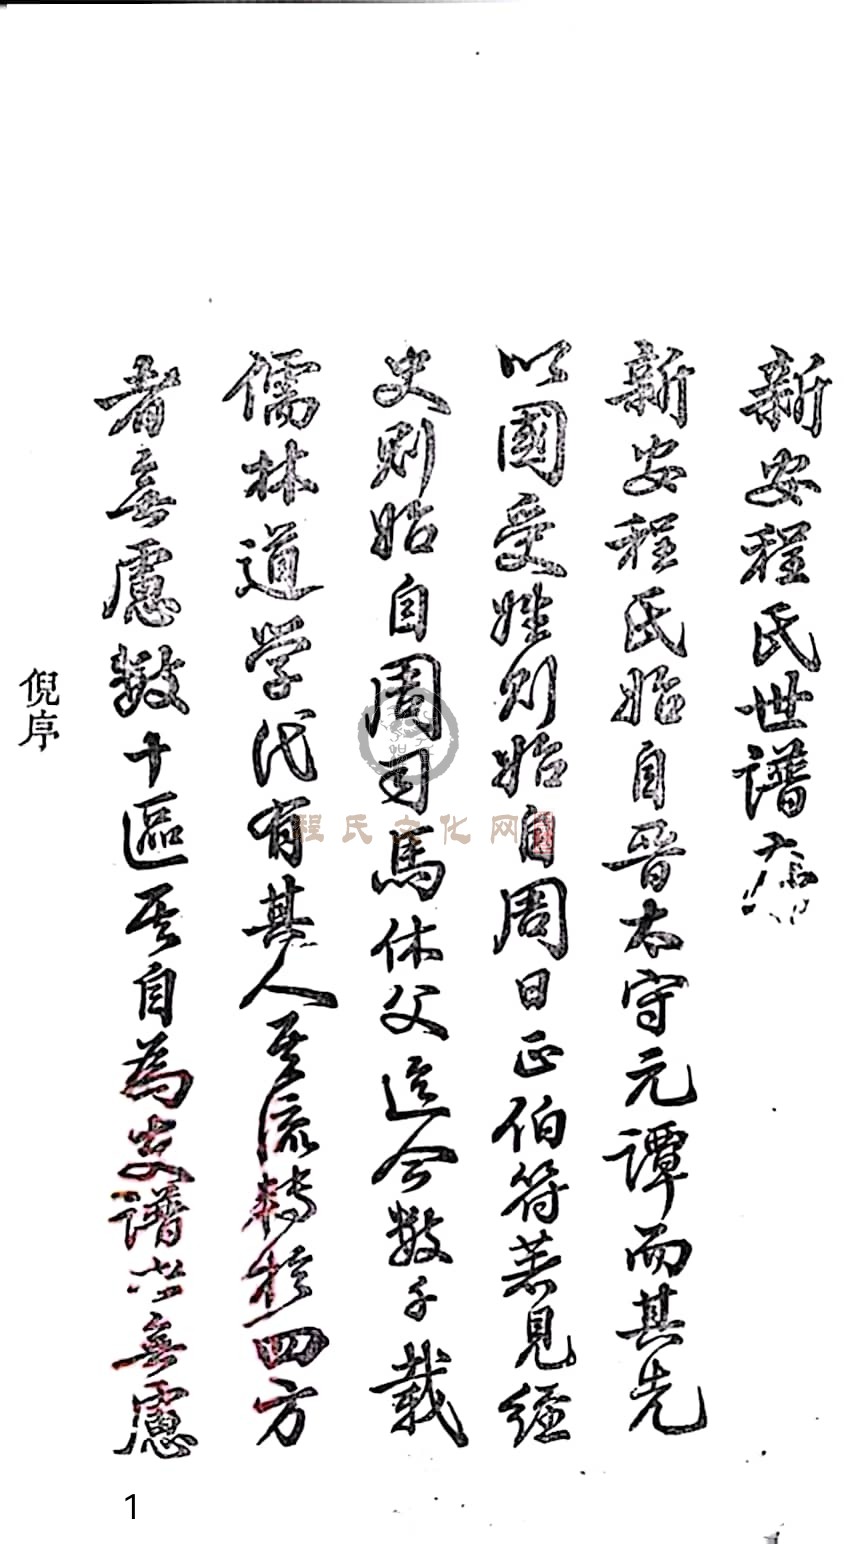 新安程氏世譜序
新安程氏始自晉太守元譚而其先
以國受姓則始自周曰正伯符著見經
史則始自周司馬休父迄今數千載
儒林道学代有其人至流轉於四方
者無慮數十區至自為支譜亦無慮
倪序
程氏文化网
1